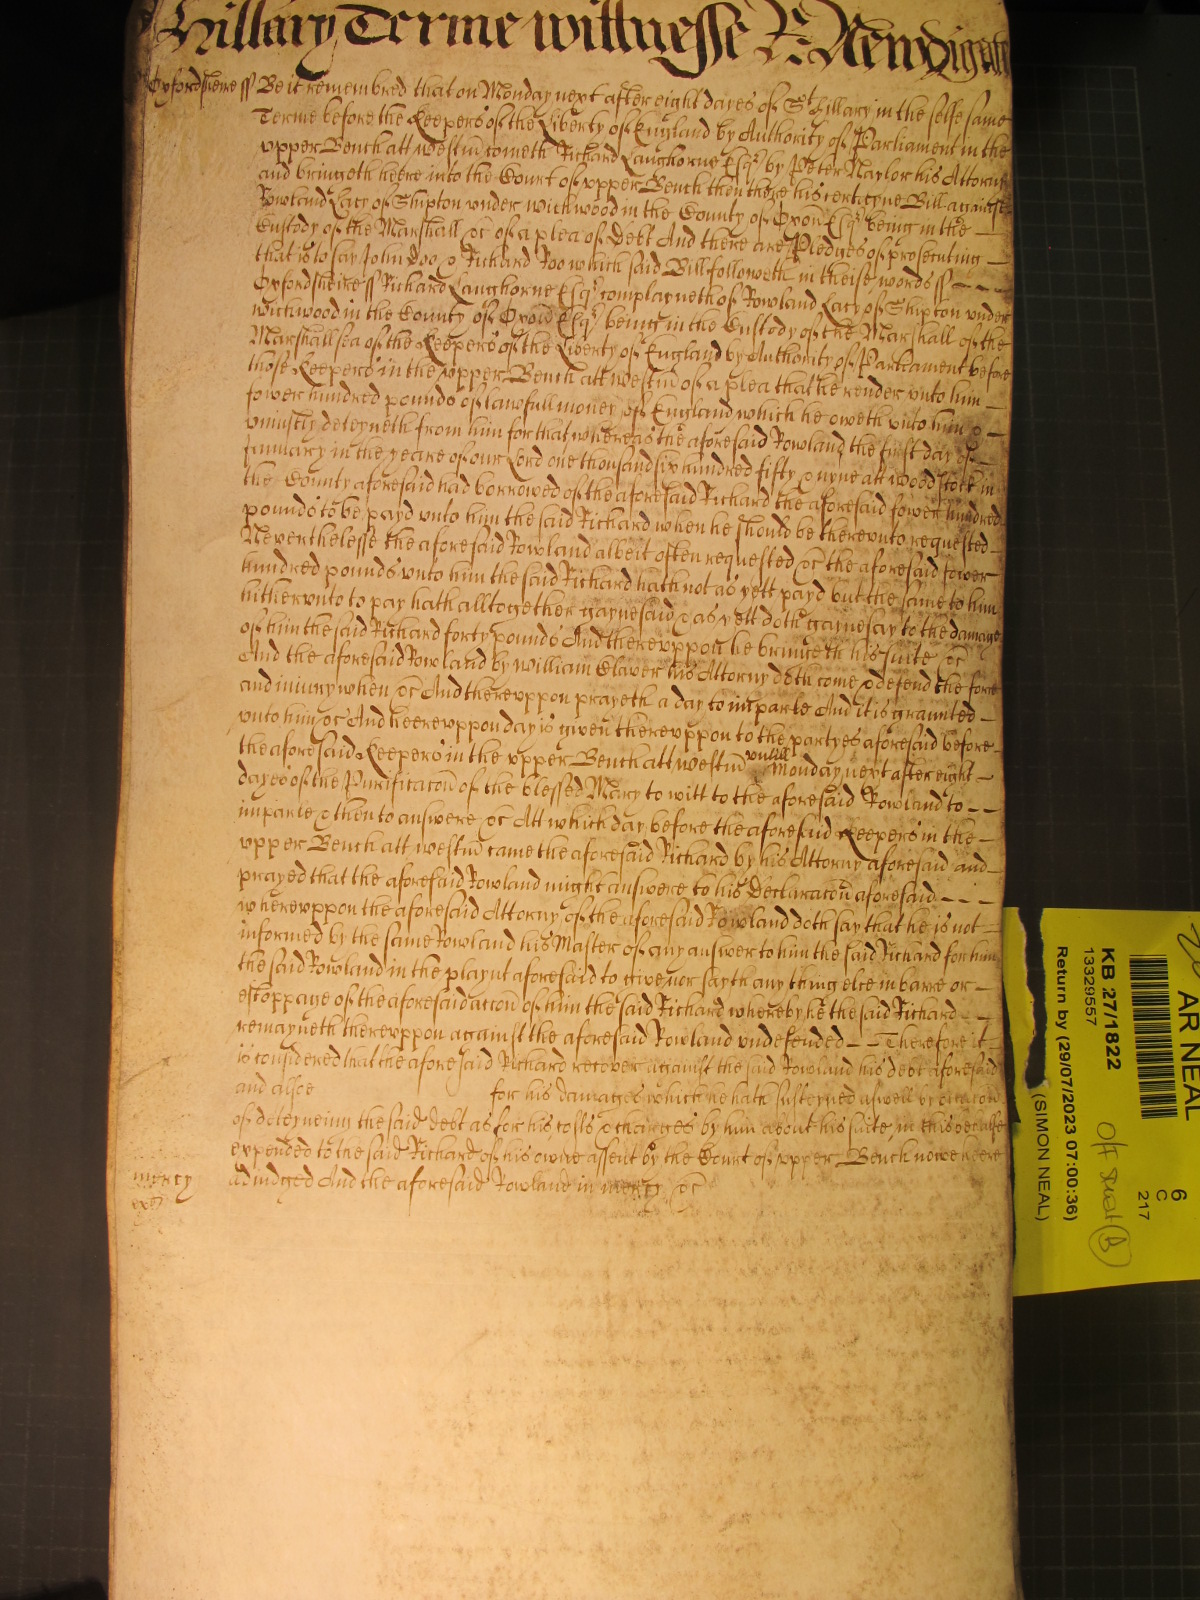 Hillary Terme wittnesse R: Newdigate
Oxfordsheire ss Be it remembred that on Monday next after eight dayes of St Hillary in the selfe same
Terme before the Keepers of the Liberty of England by Authority of Parliament in the
upper Bench att Westm cometh Richard Langhorne Esqr by Peter Naylor his Attorny
and bringeth heere into the Court of upper Bench then there his certeyne Bill against
Rowland Lacy of Shipton under Wichwood in the County of Oxon Esqr being in the
Custody of the Marshall &c of a plea of Debt And there are Pledges of prosecuting
that is to say John Doo & Richard Roo which said Bill followeth in theise words ss
Oxfordsheire ss Richard Langhorne Esqr complayneth of Rowland Lacy of Shipton under
Wichwood in the County of Oxon Esqr being in the Custody of the Marshall of the
Marshallsea of the Keepers of the Liberty of England by Authority of Parliament before
those Keepers in the upper Bench att Westm of a plea that he render unto him
fower hundred pounds of lawfull money of England which he oweth unto him &
uniustly deteyneth from him for that whereas the aforesaid Rowland the first day of
January in the yeare of our Lord one thousand six hundred fifty & nyne att Woodstock in
the County aforesaid had borrowed of the aforesaid Richard the aforesaid fower hundred
pounds to be payd unto him the said Richard when he should be thereunto requested
Neverthelesse the aforesaid Rowland albeit often requested &c the aforesaid fower
hundred pounds unto him the said Richard hath not as yett payd but the same to him
hitherunto to pay hath alltogether gaynesaid & as yett doth gaynesay to the damage
of him the said Richard forty pounds And thereuppon he bringeth his suite &c
And the aforesaid Rowland by William Claver his Attorny doth come & defend the force
and iniury when &c And thereuppon prayeth a day to imparle And it is graunted
unto him &c And heereuppon day is given thereuppon to the partyes aforesaid before
the aforesaid Keepers in the upper Bench att Westm untill Monday next after eight
dayes of the Purificacon of the blessed Mary to witt to the aforesaid Rowland to
imparle & then to answere &c Att which day before the aforesaid Keepers in the
upper Bench att Westm came the aforesaid Richard by his Attorny aforesaid and
prayed that the aforesaid Rowland might answere to his Declaracon aforesaid
whereuppon the aforesaid Attorny of the aforesaid Rowland doth say that he is not
informed by the same Rowland his Master of any answer to him the said Richard for him
the said Rowland in the playnt aforesaid to give nor sayth any thing else in barre or
estoppage of the aforesaid accon of him the said Richard whereby he the said Richard
remayneth thereuppon against the aforesaid Rowland undefended Therefore it
is considered that the aforesaid Richard recover against the said Rowland his debt aforesaid
and alsoe for his damages which he hath susteyned aswell by occacon
of deteyneing the said debt as for his costs & charges by him about his suite in this behalfe
expended to the said Richard of his owne assent by the Court of upper Bench nowe heere
mercy adiudged And the aforesaid Rowland in mercy &c
AR NEAL
KB 27/1822
13329557
Return by (29/07/2023 07:00:36)
(SIMON NEAL)
6
C
217